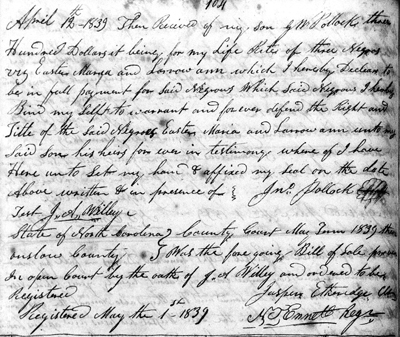 104
April 12th 1839 Then Recived of my son by W Pollock three
Hundred Dollars it being for my Life Rite of three Negroes
viz Easter Maria and Sarrow ann which I hereby Declear to
be in full payment for Said Negroes Which Said Negroes I hereby
Bind my Self to warrant and forever defend the Right and
Title of the Said Negroes Easter Maria and Sarrow ann unto my
Said son his heirs for ever in testimony where of I have
Here unto Set my hand & affixed my Seal on the date
Above written & in presence of } Jno. Pollock
Test J. A. Willey
State of North Carolina } County Court May Term 1839 then
Onslow County } Was the fore going Bill of Sale proven
In open Court by the oath of J. A Willey and ordered to be
Registered Jasper Etheridge Clk
Registered May the 1st 1839 N. L. Ennett Regr